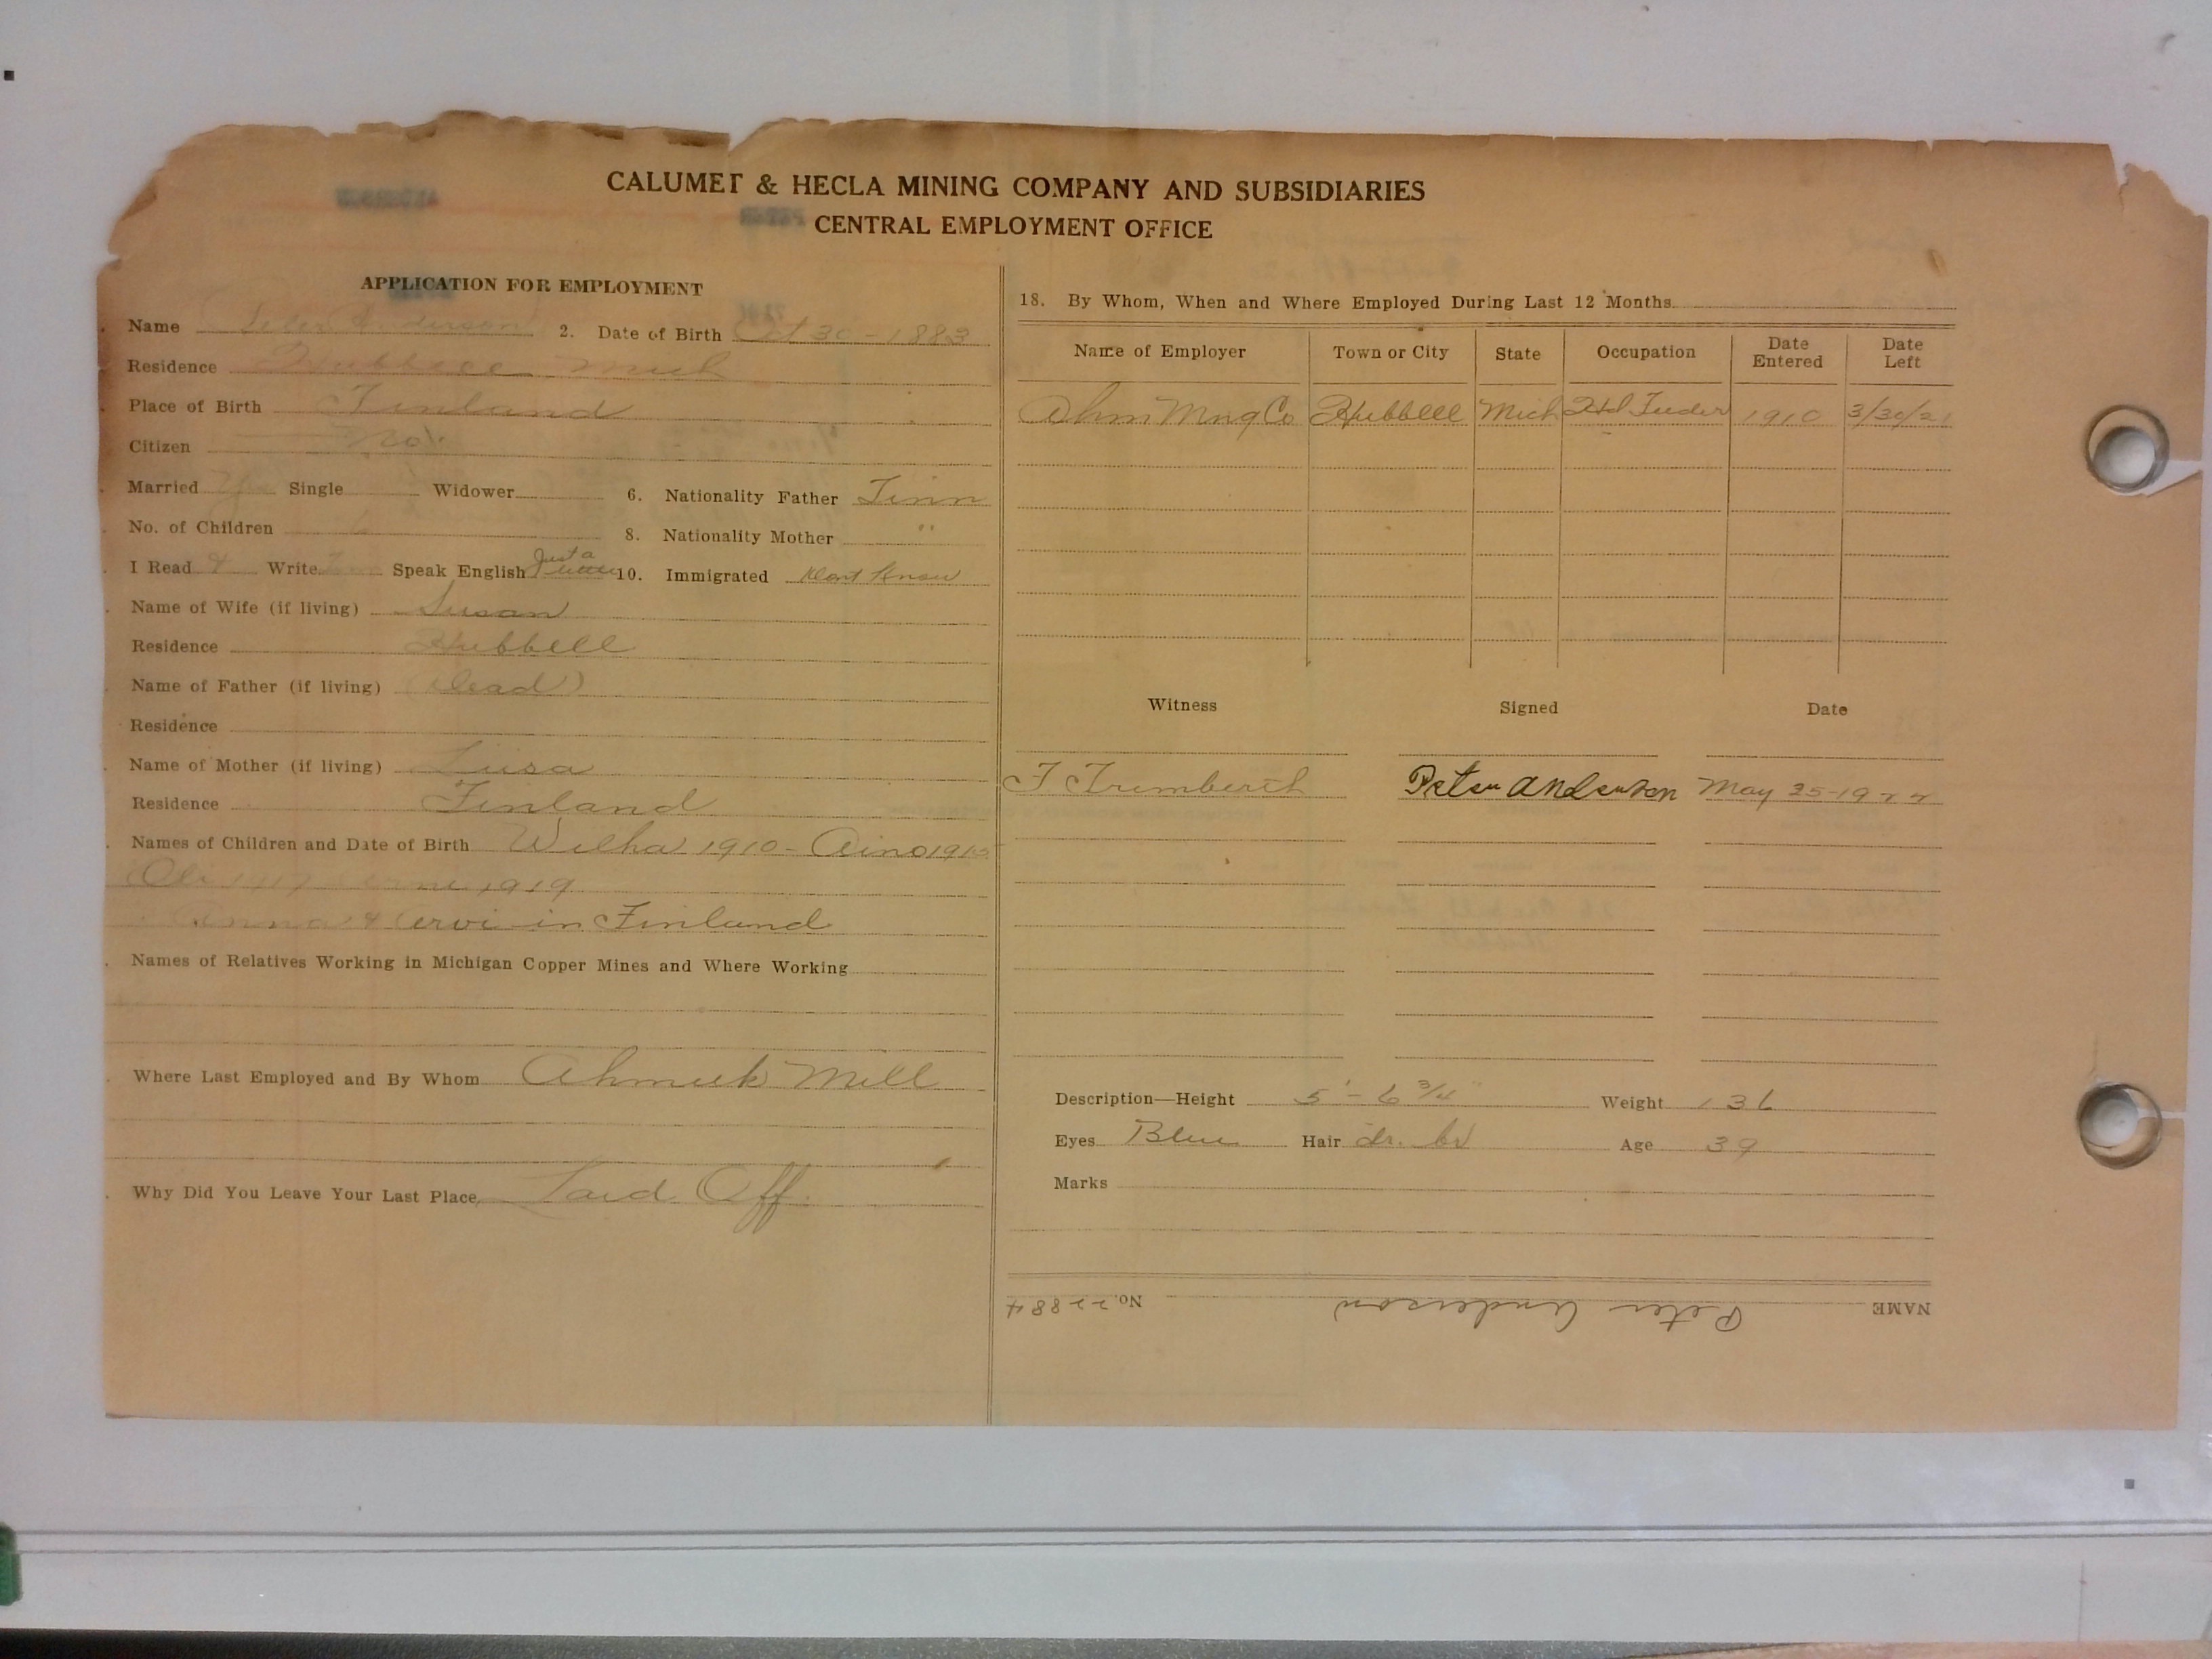 CALUMET & HECLA MINING COMPANY AND SUBSIDIARIES
CENTRAL EMPLOYMENT OFFICE
APPLICATION FOR EMPLOYMENT
Name Peter Anderson 2. Date of Birth Oct 30-1883
Residence Hubbell Mich
Place of Birth Finland
Citizen No
Married Yes Single Widower 6. Nationality Father Finn
No. of Children 6 8. Nationality Mother "
I Read & Write Speak English Just a little 10. Immigrated Dont Know
Name of Wife (if living) Susan
Residence Hubbell
Name of Father (if living) (Dead)
Residence
Name of Mother (if living) Liisa
Residence Finland
Names of Children and Date of Birth Wilha 1910 - Aino
1919
Anna & Arvi in Finland
Names of Relatives Working in Michigan Copper Mines and Where Working
Where Last Employed and By Whom Ahmeek Mill
Why Did You Leave Your Last Place Laid Off.
18. By Whom, When and Where Employed During Last 12 Months
Name of Employer Town or City State Occupation Date Entered Date Left
Ahm Mng Co Hubbell Mich Hd Feeder 1910 3/30/21
Witness Signed Date
Peter Anderson May 25-1922
Description—Height 5'-6 3/4" Weight 136
Eyes Blue Hair dr. br Age 39
Marks
NAME Peter Anderson No. 22884